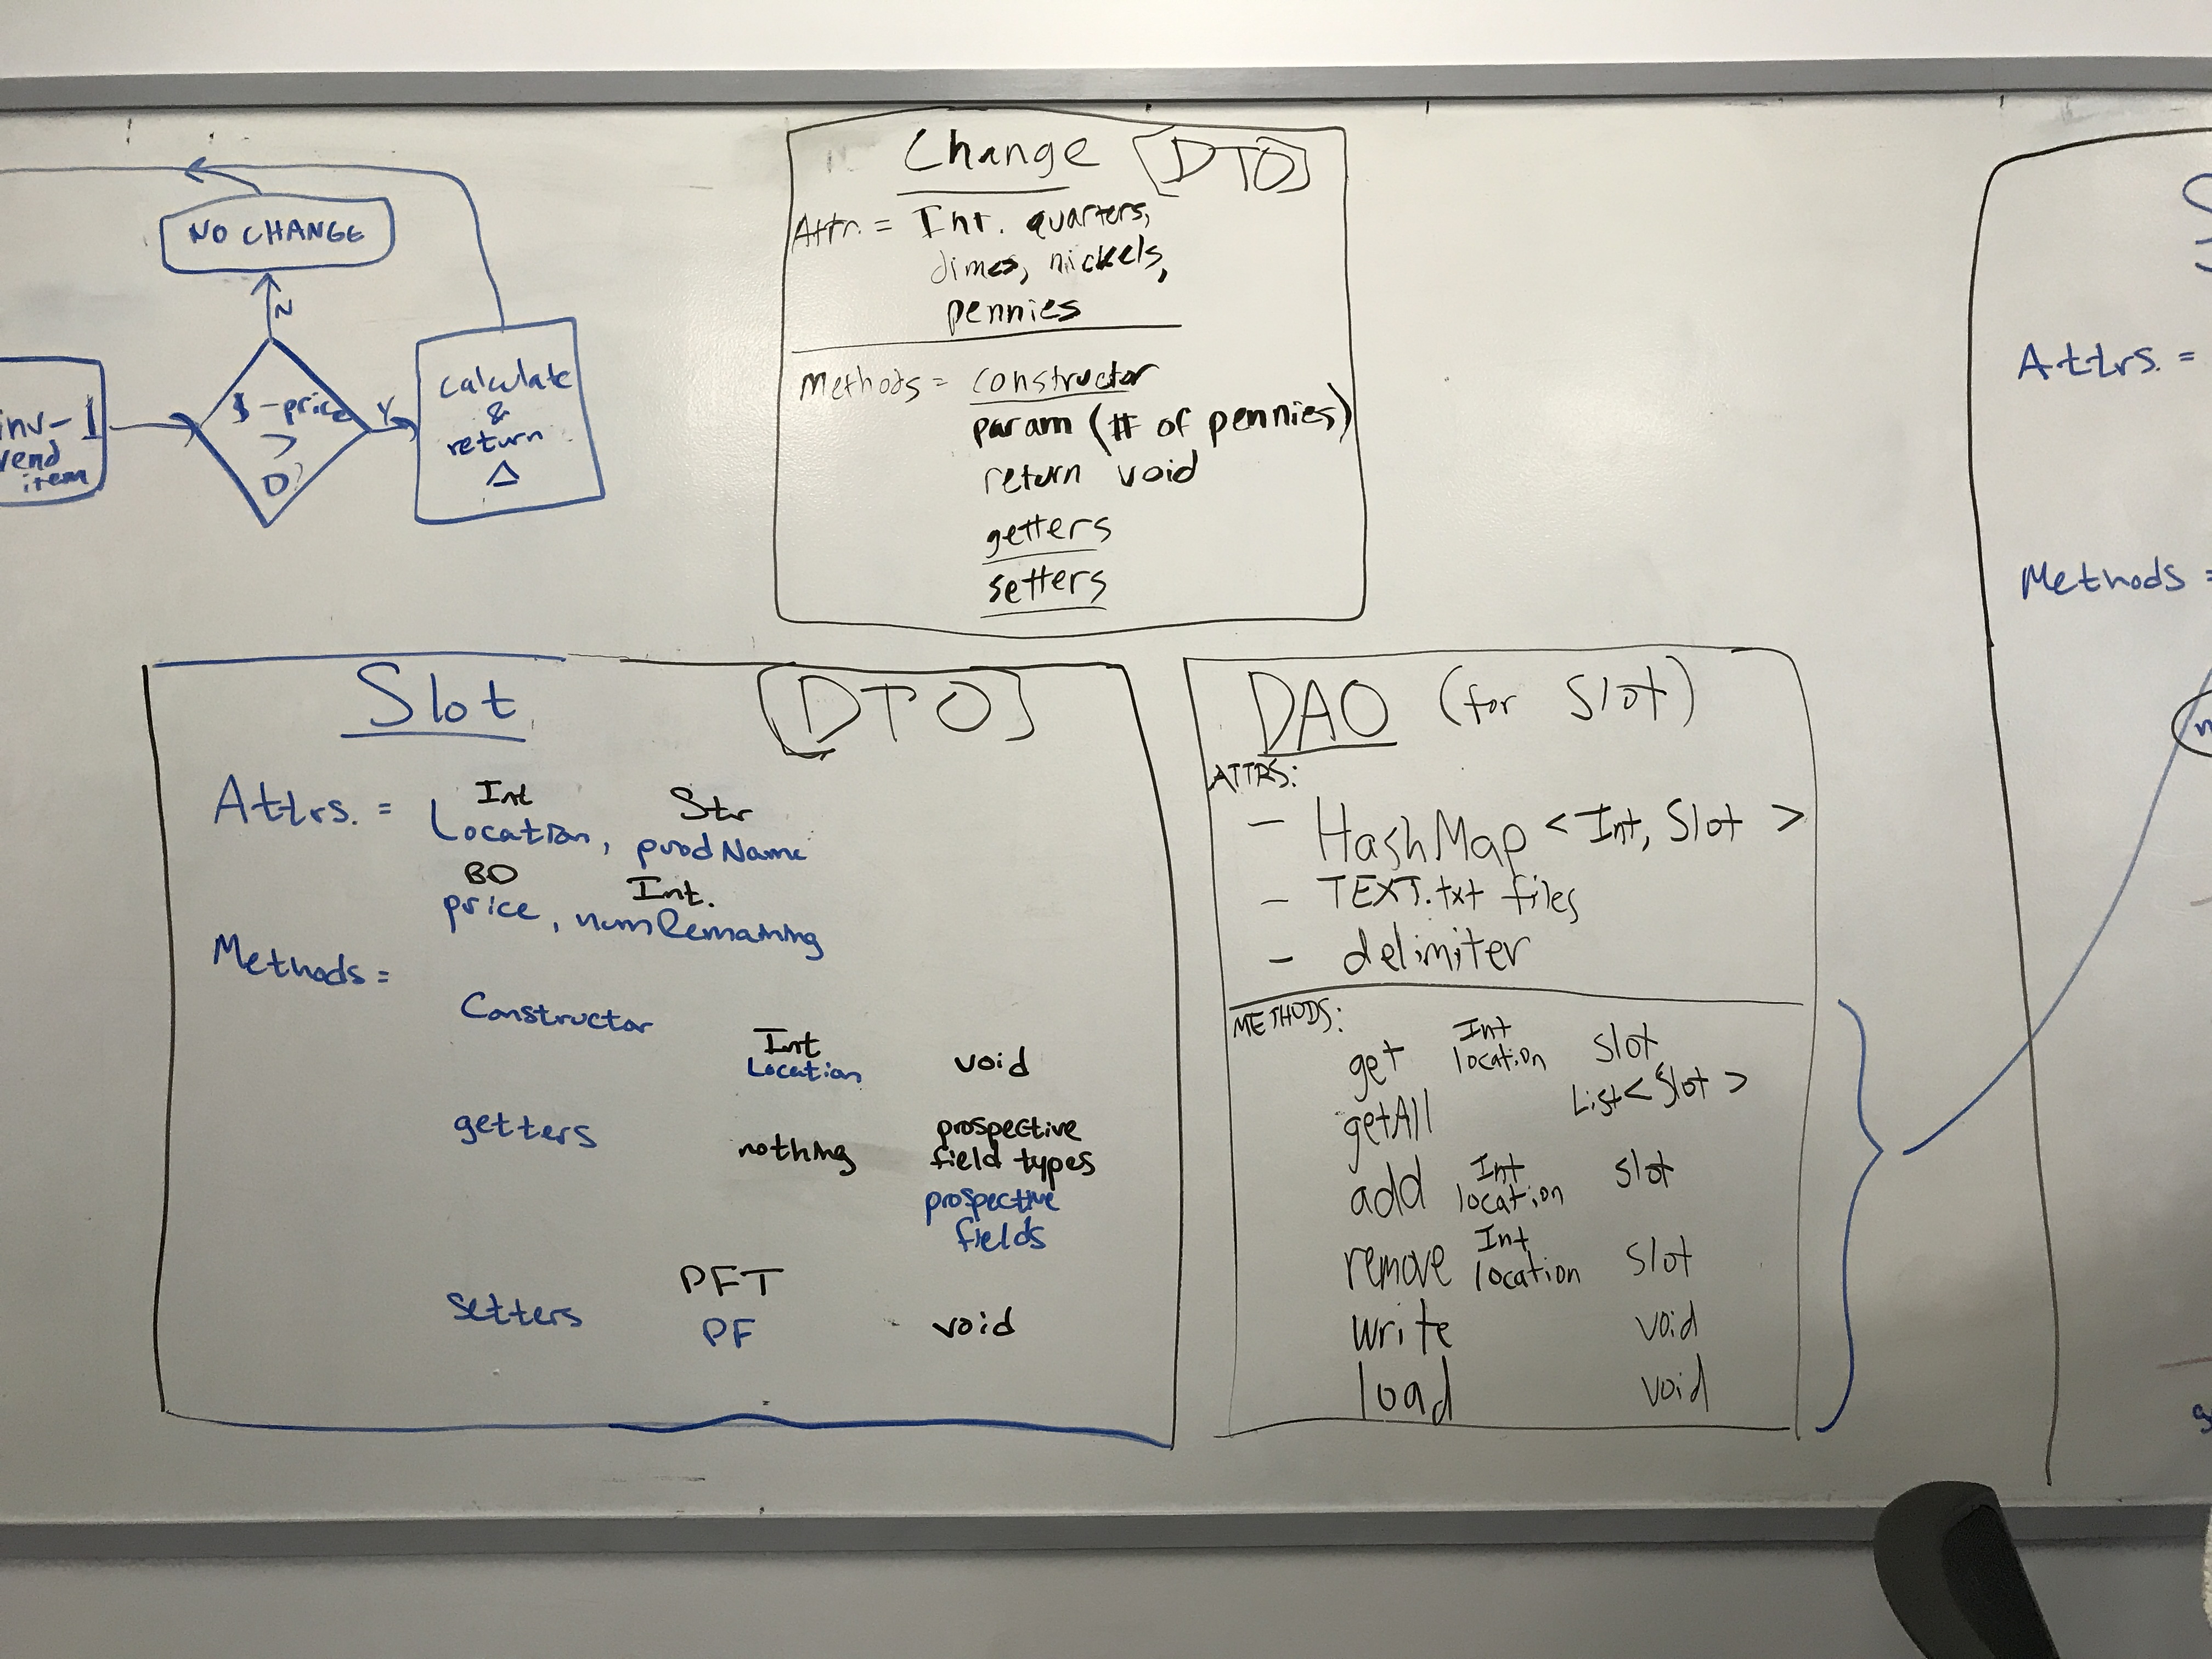 NO CHANGE
N
inv-1
vend
item
$ -price
>
0?
Y
calculate
&
return
Δ
Change [DTO]
Attr. = Int. quarters,
dimes, nickels,
pennies
Methods = constructor
param (# of pennies)
return void
getters
setters
Slot [DTO]
Attrs. = Int Str
Location, prodName
BD Int.
price, numRemaining
Methods =
Constructor
Int
Location void
getters nothing prospective
field types
prospective
fields
setters PFT
PF void
DAO (for Slot)
ATTRS:
- HashMap <Int, Slot >
- TEXT.txt files
- delimiter
METHODS:
get Int location Slot
getAll List<Slot>
add Int location slot
remove Int location slot
write void
load void
Attrs. =
Methods =